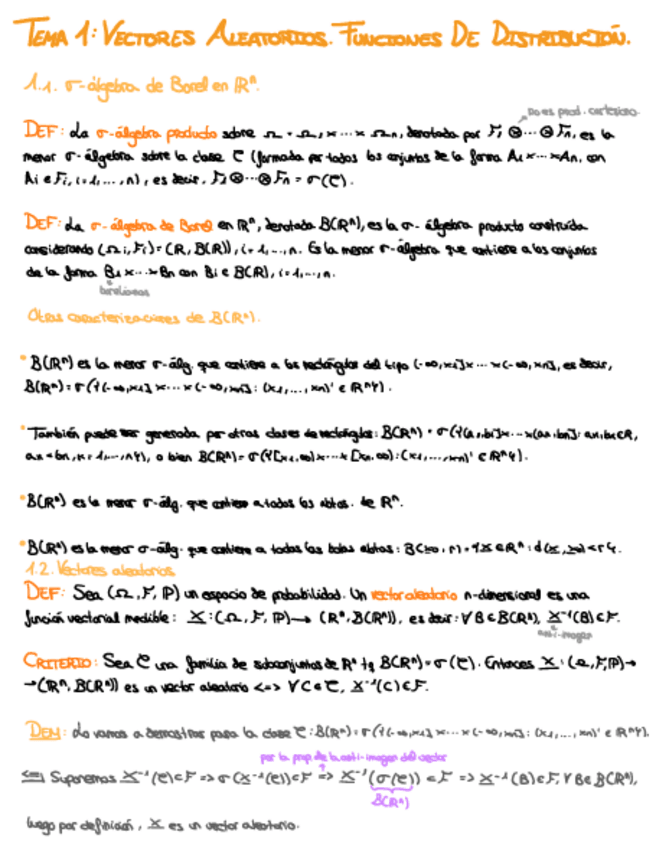 TEMA 1: VECTORES ALEATORIOS. FUNCIONES DE DISTRIBUCIÓN.
1.1. σ-álgebra de Borel en ℝⁿ.
no es prod. cartesiano
DEF: La σ-álgebra producto sobre Ω = Ω₁ x ... x Ωn, denotada por F₁ ⊗ ... ⊗ Fn, es la
menor σ-álgebra sobre la clase C (formada por todos los conjuntos de la forma A₁ x ... x An, con
Ai ∈ Fi, i=1, ..., n), es decir, F₁ ⊗ ... ⊗ Fn = σ(C).
DEF: La σ-álgebra de Borel en ℝⁿ, denotada B(ℝⁿ), es la σ-álgebra producto construida
considerando (Ωi, Fi) = (ℝ, B(ℝ)), i=1, ..., n. Es la menor σ-álgebra que contiene a los conjuntos
de la forma B₁ x ... x Bn con Bi ∈ B(ℝ), i=1, ..., n.
borelianos
Otras caracterizaciones de B(ℝⁿ).
• B(ℝⁿ) es la menor σ-álg. que contiene a los rectángulos del tipo (-∞, x₁] x ... x (-∞, xn], es decir,
B(ℝⁿ) = σ({(-∞, x₁] x ... x (-∞, xn]: (x₁, ..., xn)' ∈ ℝⁿ}).
• También puede ser generada por otras clases de rectángulos: B(ℝⁿ) = σ({(a₁, b₁] x ... x (an, bn]: ak, bk ∈ ℝ,
ak < bk, k=1, ..., n}), o bien B(ℝⁿ) = σ({[x₁, ∞) x ... x [xn, ∞): (x₁, ..., xn)' ∈ ℝⁿ}).
• B(ℝⁿ) es la menor σ-álg. que contiene a todos los abtos. de ℝⁿ.
• B(ℝⁿ) es la menor σ-álg. que contiene a todas las bolas abtas: B(x₀, r) = {x ∈ ℝⁿ: d(x, x₀) < r}.
1.2. Vectores aleatorios
DEF: Sea (Ω, F, P) un espacio de probabilidad. Un vector aleatorio n-dimensional es una
función vectorial medible: X: (Ω, F, P) → (ℝⁿ, B(ℝⁿ)), es decir: ∀ B ∈ B(ℝⁿ), X⁻¹(B) ∈ F.
anti-imagen
CRITERIO: Sea C una familia de subconjuntos de ℝⁿ tq B(ℝⁿ) = σ(C). Entonces X: (Ω, F, P) →
→ (ℝⁿ, B(ℝⁿ)) es un vector aleatorio <=> ∀ C ∈ C, X⁻¹(C) ∈ F.
DEM: Lo vamos a demostrar para la clase C: B(ℝⁿ) = σ({(-∞, x₁] x ... x (-∞, xn]: (x₁, ..., xn)' ∈ ℝⁿ}).
por la prop. de la anti-imagen del vector
<=| Suponemos X⁻¹(C) ⊂ F => σ(X⁻¹(C)) ⊂ F => X⁻¹(σ(C)) ⊂ F => X⁻¹(B) ∈ F, ∀ B ∈ B(ℝⁿ),
B(ℝⁿ)
luego por definición, X es un vector aleatorio.